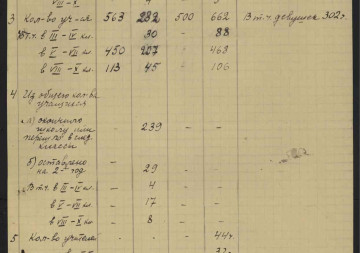 VIII – X
3 Кол-во уч-ся 563 282 500 662 В т.ч. девушек 302 г.
В т.ч. в III – IV кл. 30 - 88
в V – VII кл. 450 207 - 468
в VIII – X кл. 113 45 - 106
4 Из общего кол-ва
учащихся
а) окончило
школу или
перешло в след.
классы - 239 - -
б) оставлено
на 2й год - 29 - -
В т.ч. в III – IV кл. - 4 - -
в V – VII кл. - 17 - -
в VIII – X кл. - 8 - -
5 Кол-во учителей - - - 44